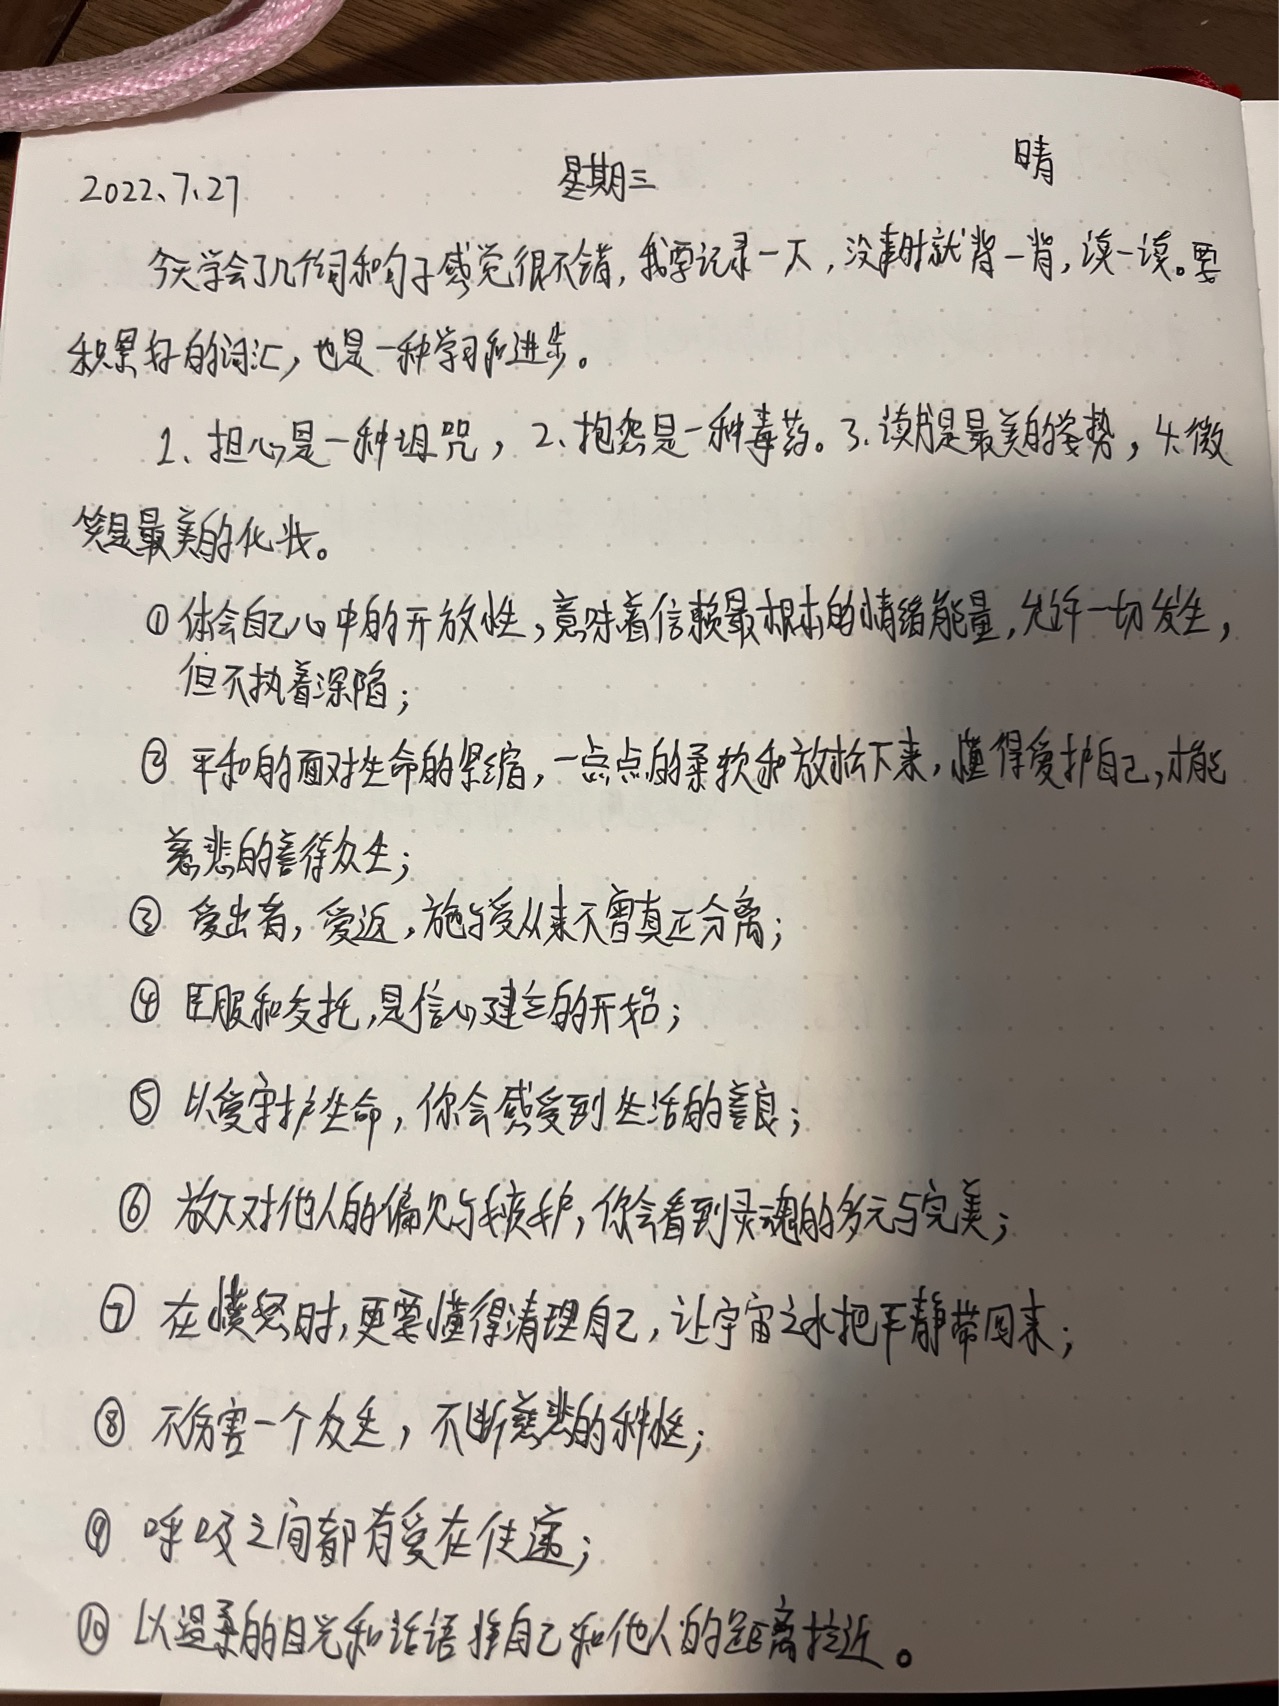 2022、7、27 星期三 晴
今天学会了几个词和句子感觉很不错，我要记录一下，没事时就背一背，读一读。要
积累好的词汇，也是一种学习和进步。
1、担心是一种诅咒，2、抱怨是一种毒药。3、读书是最美的姿势，4、微
笑是最美的化妆。
①体会自己心中的开放性，意味着信赖最根本的情绪能量，允许一切发生，
但不执着深陷；
②平和的面对生命的紧缩，一点点的柔软和放松下来，懂得爱护自己，才能
慈悲的善待众生；
③爱出者，爱返，施与受从来不曾真正分离；
④臣服和交托，是信心建立的开始；
⑤以爱守护生命，你会感受到生活的善良；
⑥放下对他人的偏见与袒护，你会看到灵魂的多元与完美；
⑦在愤怒时，更要懂得清理自己，让宇宙之水把平静带回来；
⑧不伤害一个众生，不断慈悲的种性；
⑨呼吸之间都有爱在传递；
⑩以温柔的目光和话语将自己和他人的距离拉近。